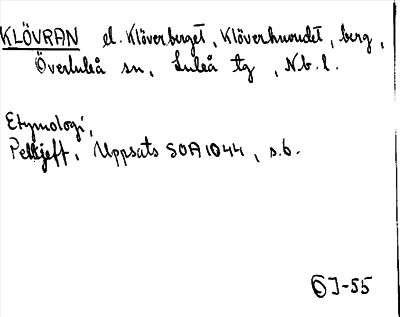 KLÖVRAN el. Klöverberget, Klöverhuvudet, berg,
Överluleå sn, Luleå tg, Nb. l.
Etymologi,
Pellijeff, Uppsats SOA 1044, s.6.
ÖJ-55